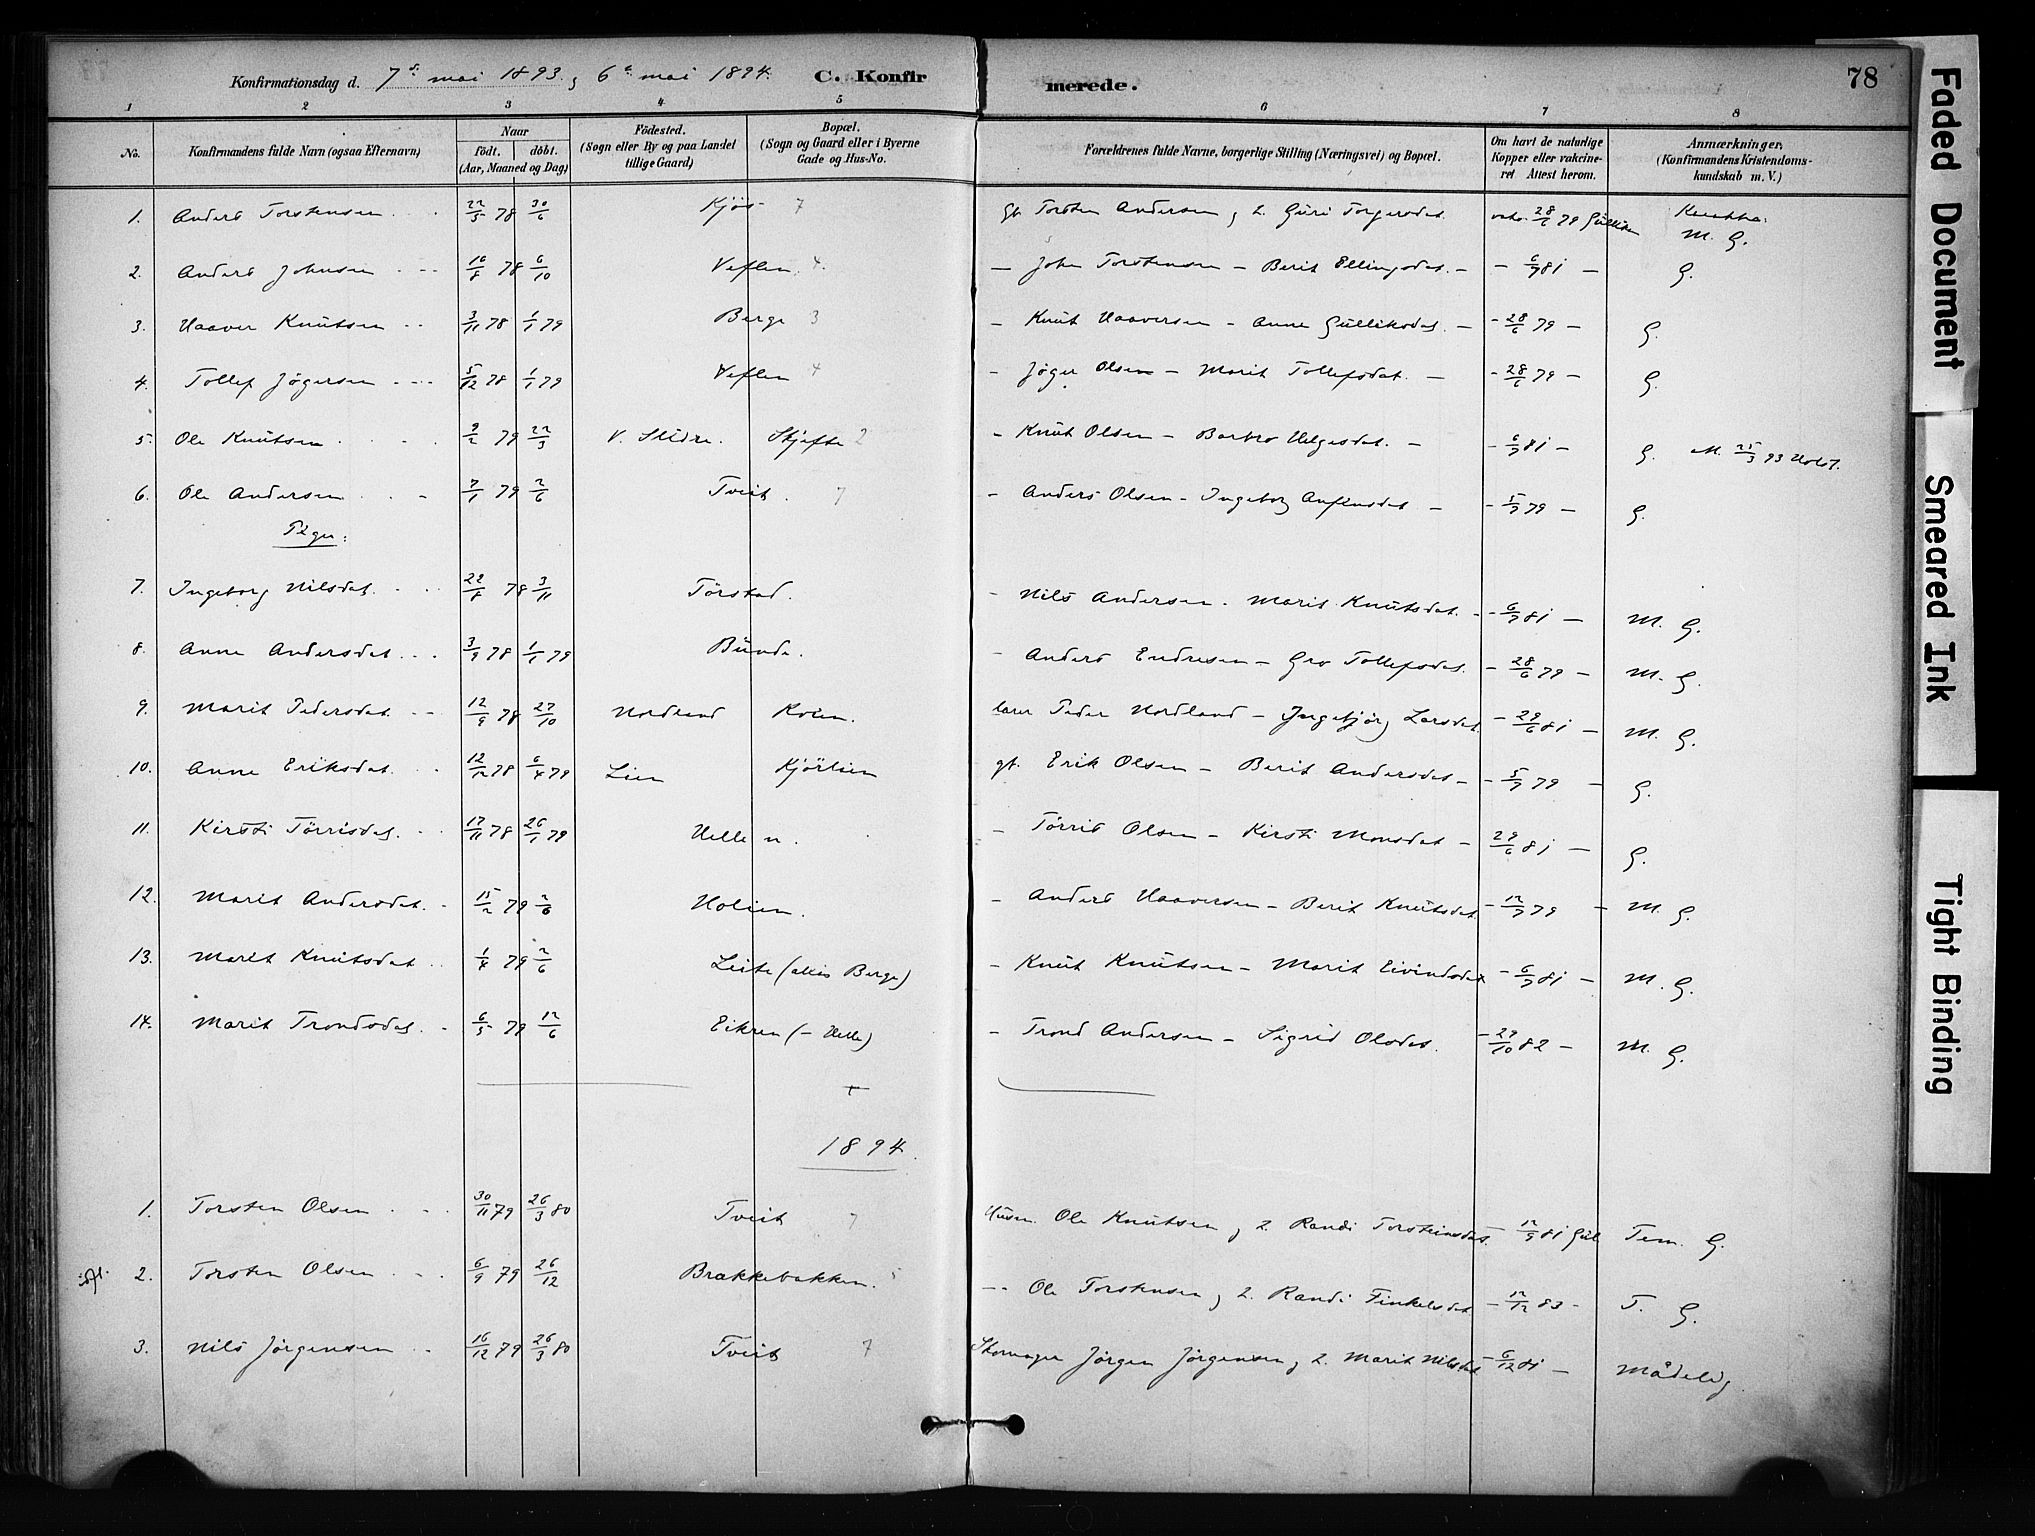 Konfirmationsdag d. 7de mai 1893 og 6te mai 1894. C. Konfirmerede. 78
1 2 3 4 5 6 7 8
No. Konfirmandens fulde Navn (ogsaa Efternavn) Naar født. døbt. (Aar, Maaned og Dag) Födested. (Sogn eller By og paa Landet tillige Gaard) Bopæl. (Sogn og Gaard eller i Byerne Gade og Hus-No. Forældrenes fulde Navne, borgerlige Stilling (Næringsvei) og Bopæl. Om havt de naturlige Kopper eller vakcineret Attest herom. Anmærkninger, (Konfirmandens Kristendomskundskab m. V.)
1. Anders Torstensen 22/5 78 30/6 Kjøs 7 gb. Torsten Andersen og h. Guri Torgersdat. 28/6 79 M. G.
2. Anders Johnsen 16/8 78 6/10 Veflen 4 — John Torstensen — Berit Ellingsdat. — 6/7 81 — G.
3. Haaver Knutsen 3/11 78 1/1 79 Berge 3 — Knut Haaversen — Anne Gulliksdat. — 28/6 79 — G.
4. Tollef Jögersen 5/12 78 1/1 79 Veflen 4 — Jöger Olsen — Marit Tollefsdat. — 28/6 79 — G.
5. Ole Knutsen 9/2 79 22/3 V. Slidre. Skjefte 2 — Knut Olsen — Barbro Helgesdat. — 6/7 81 — G. 25/3 93
6. Ole Andersen 7/1 79 2/6 Tveit 7 — Anders Olsen — Ingeborg Anfinsdat — 15/7 79 — G.
Piger:
7. Ingeborg Nilsdat. 22/8 78 3/11 Törstad. — Nils Andersen — Marit Knutsdat. — 6/7 81 — M. G.
8. Anne Andersdat. 3/9 78 1/1 79 Bunde. — Anders Endresen — Gro Tollefsdat. — 28/6 79 — M. G.
9. Marit Pedersdat. 12/9 78 27/10 Nordland Koien. lærer Peder Nordland — Ingebjörg Larsdat. — 29/6 81 — M. G.
10. Anne Eriksdat. 12/12 78 6/4 79 Lien Kjörlien gb. Erik Olsen — Berit Andersdat — 5/7 79 — G.
11. Kirsti Törrisdat. 17/11 78 26/1 79 Helle n. — Törris Olsen — Kirsti Monsdat — 29/6 81 — G.
12. Marit Andersdat. 15/2 79 2/6 Holien. — Anders Haaversen — Berit Knutsdat — 12/7 79 — M. G.
13. Marit Knutsdat 1/4 79 2/6 Leite (alias Berge) — Knut Knutsen — Marit Eivindsdat — 6/7 81 — M. G.
14. Marit Trondsdat. 6/5 79 12/6 Eikren (— Helle) — Trond Andersen — Sigrid Olsdat. — 29/10 82 — M. G.
1894.
1. Torsten Olsen 30/11 79 26/3 80 Tveit 7 Husm. Ole Knutsen og h. Randi Torsteinsdat. — 12/9 81 Gul Tem. G.
2. Torsten Olsen 6/9 79 26/12 Brækkebakken. 5 — Ole Torstensen og h. Randi Finkelsdat — 12/12 83 — T. G.
3. Nils Jörgensen 16/12 79 26/3 80 Tveit 7 Skomager Jörgen Jörgensen og h. Marit Nilsdat — 6/12 81 — Mådelig.
Faded Document
Smeared Ink
Tight Binding